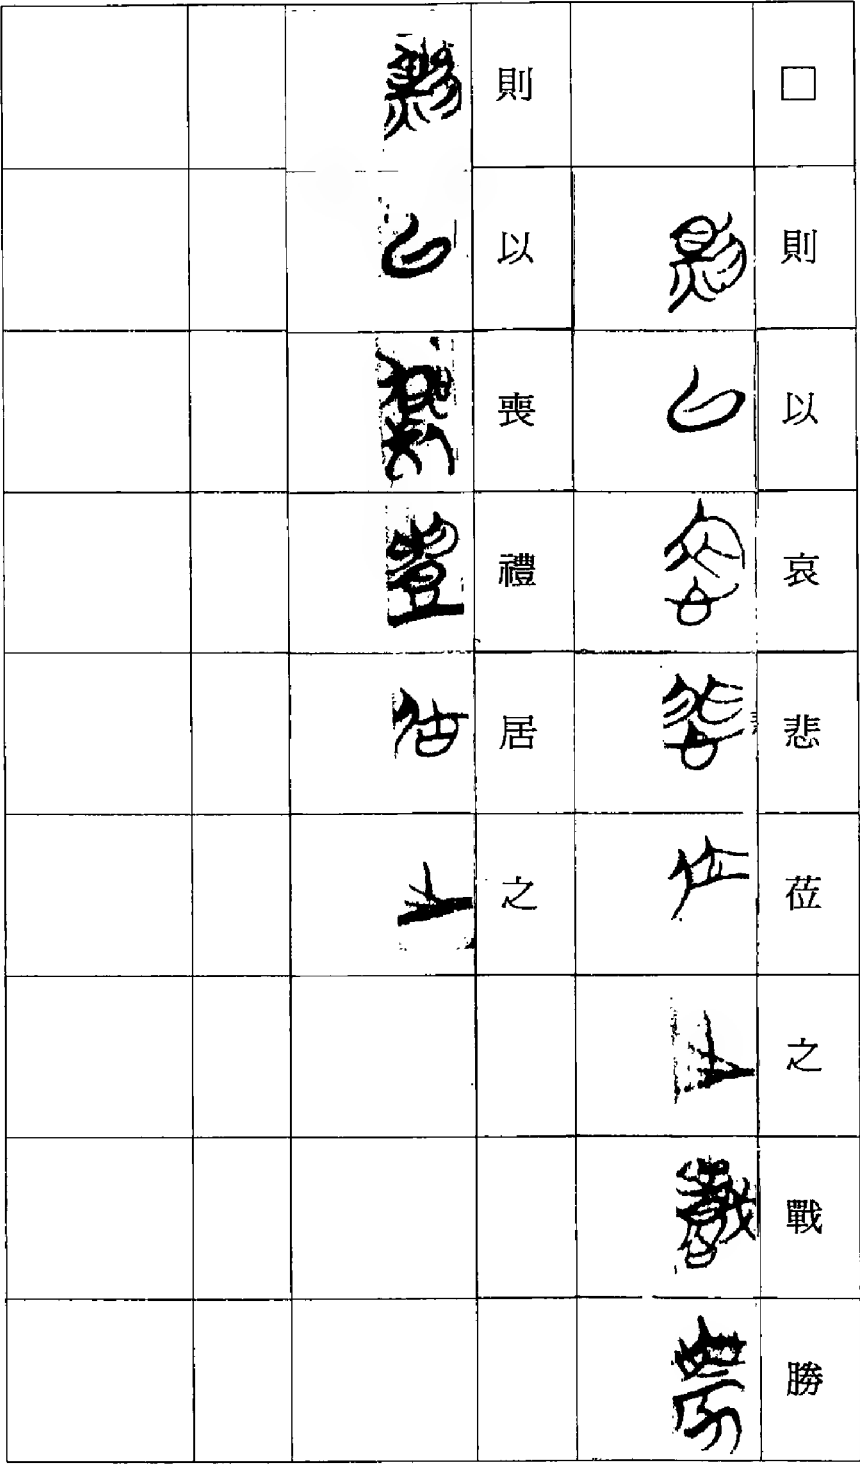 □則以哀悲莅之戰勝
則以喪禮居之